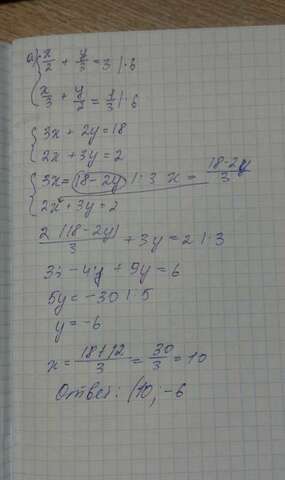 а) { x/2 + y/3 = 3 |·6
x/3 + y/2 = 1/3 |·6
{ 3x + 2y = 18
2x + 3y = 2
{ 3x = 18 - 2y | : 3 x = (18-2y)/3
2x + 3y = 2
2(18-2y)/3 + 3y = 2 | · 3
36 - 4y + 9y = 6
5y = -30 | : 5
y = -6
x = (18+12)/3 = 30/3 = 10
Ответ: (10; -6